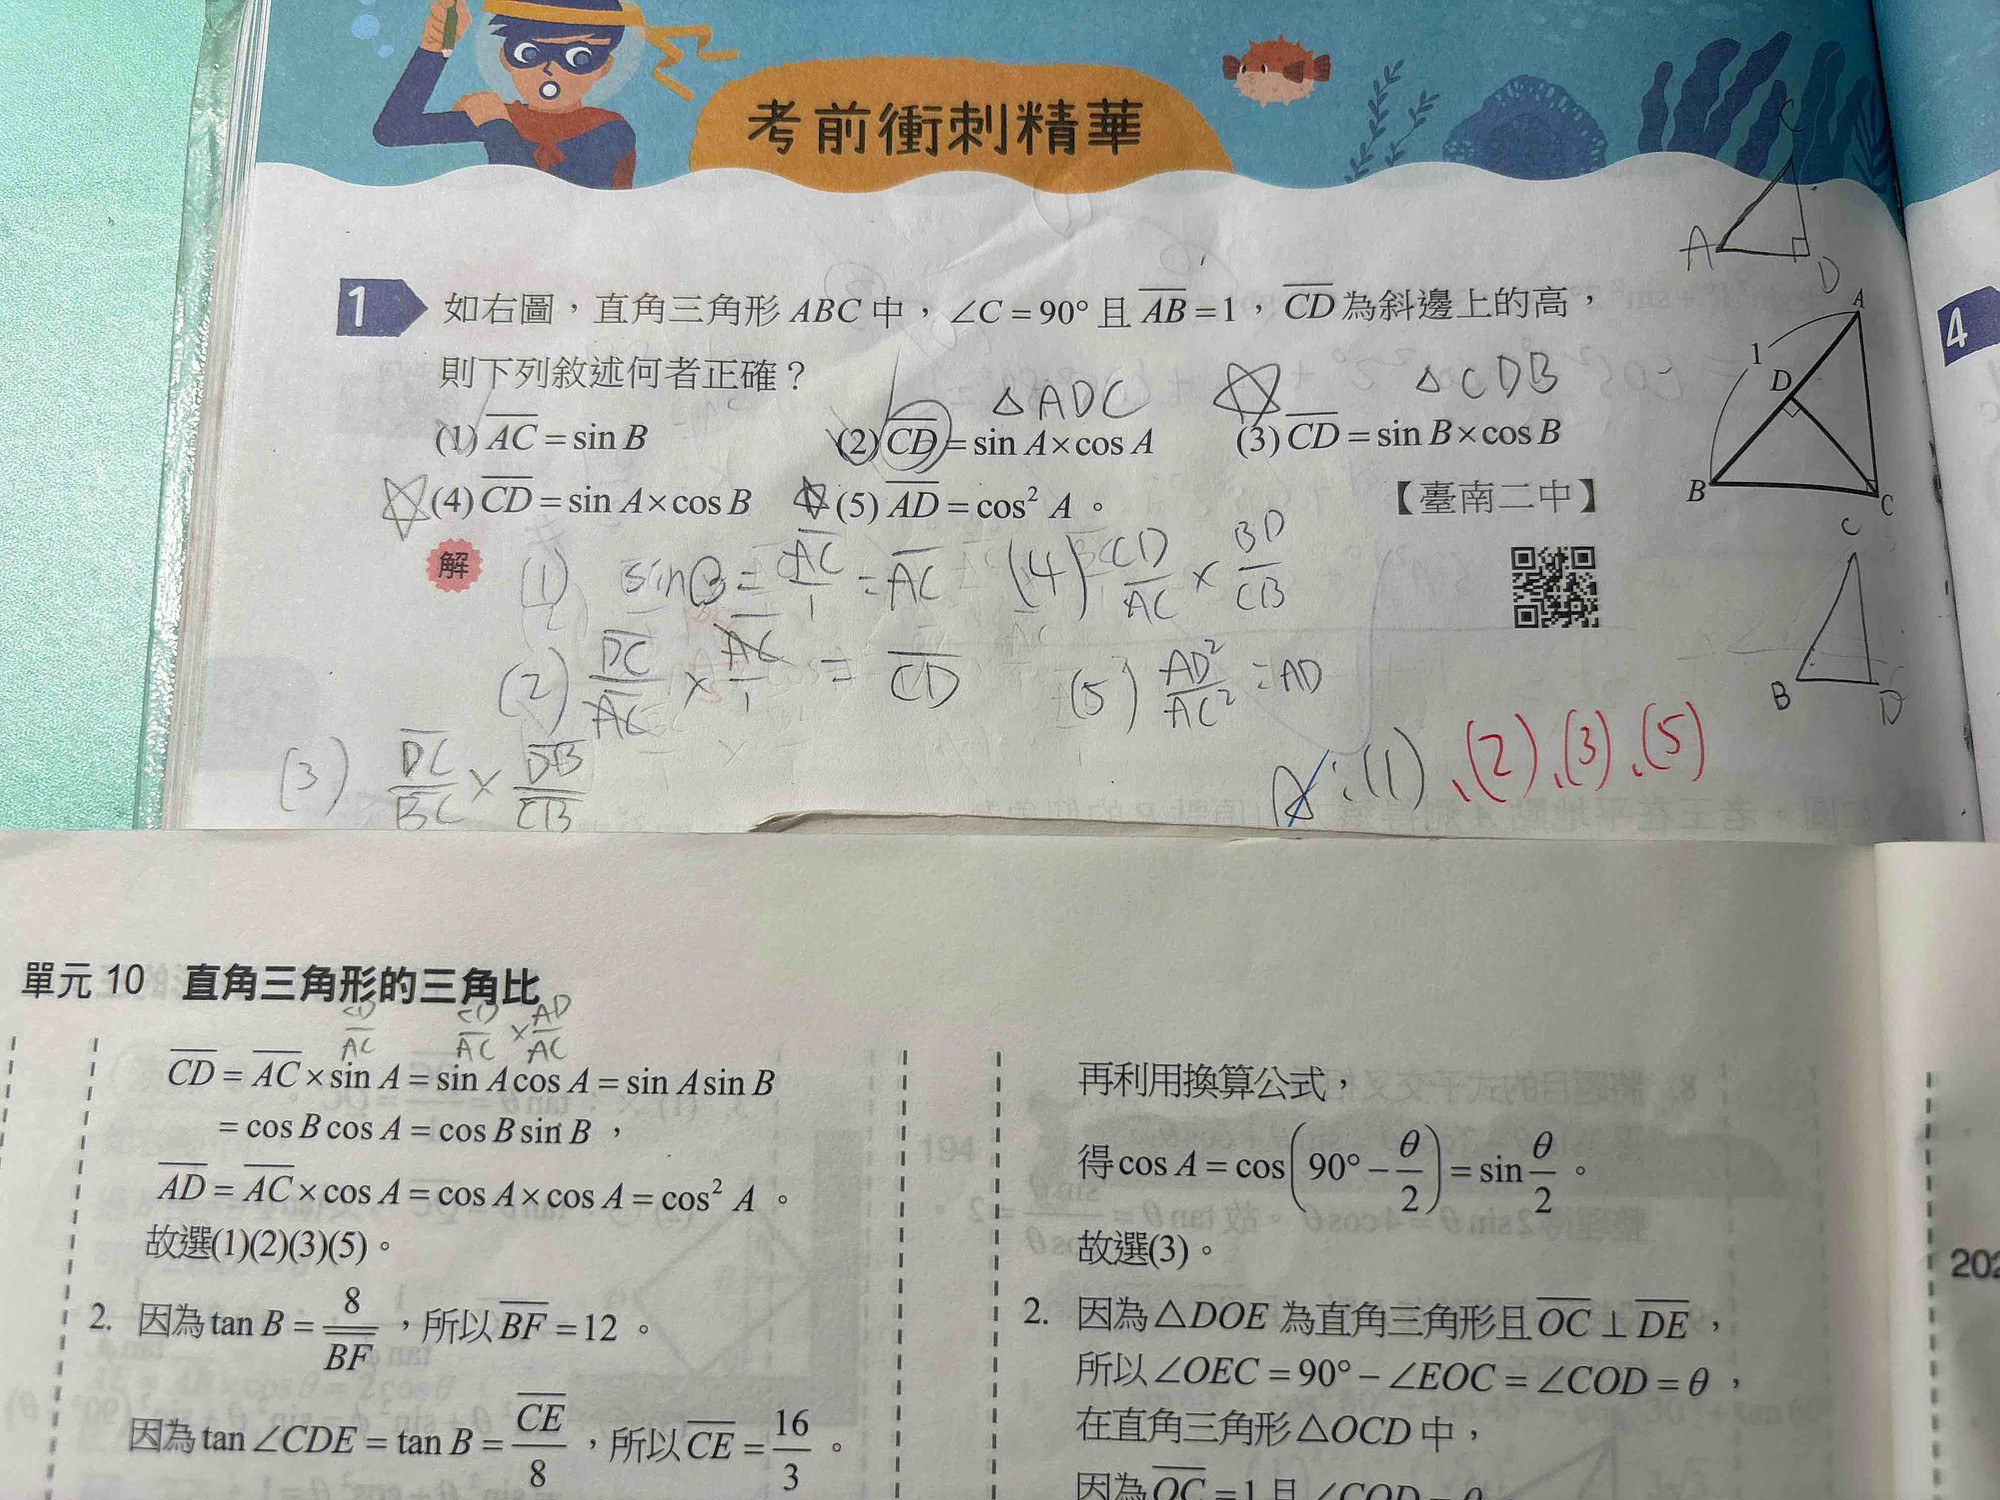 考前衝刺精華
1 如右圖，直角三角形 ABC 中，∠C = 90° 且 A̅B̅ = 1，C̅D̅ 為斜邊上的高，
則下列敘述何者正確？
△ADC
△CDB
(1) A̅C̅ = sin B (2) C̅D̅ = sin A × cos A (3) C̅D̅ = sin B × cos B
(4) C̅D̅ = sin A × cos B (5) A̅D̅ = cos² A。
【臺南二中】
C
A
D
A
1
D
B
C
C
B
D
4
解
(1) sinB = A̅C̅/1 = A̅C̅
(4) CD/AC × BD/CB
(2) D̅C̅/A̅C̅ × A̅C̅/1 = C̅D̅
(5) AD²/AC² = AD
(3) D̅C̅/B̅C̅ × D̅B̅/C̅B̅
A:(1)、(2)、(3)、(5)
單元 10 直角三角形的三角比
CD/AC CD/AC × AD/AC
C̅D̅ = A̅C̅ × sin A = sin A cos A = sin A sin B
= cos B cos A = cos B sin B，
A̅D̅ = A̅C̅ × cos A = cos A × cos A = cos² A。
故選(1)(2)(3)(5)。
2. 因為 tan B = 8/B̅F̅，所以 B̅F̅ = 12。
因為 tan ∠CDE = tan B = C̅E̅/8，所以 C̅E̅ = 16/3。
再利用換算公式，
得 cos A = cos(90° − θ/2) = sin θ/2。
故選(3)。
2. 因為 △DOE 為直角三角形且 O̅C̅ ⊥ D̅E̅，
所以 ∠OEC = 90° − ∠EOC = ∠COD = θ，
在直角三角形 △OCD 中，
因為 O̅C̅ = 1 且 ∠COD = θ
202